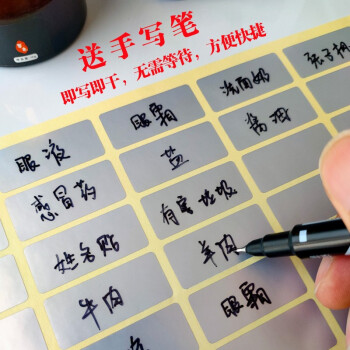 送手写笔
即写即干，无需等待，方便快捷
眼液
眼霜
洗面奶
感冒药
盐
酱油
姓名贴
有害垃圾
牛肉
羊肉
眼霜